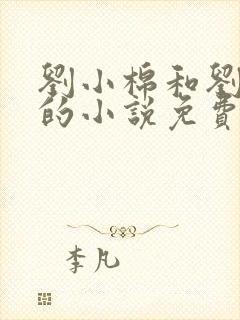 劉小棉和劉
的小說免費
李凡